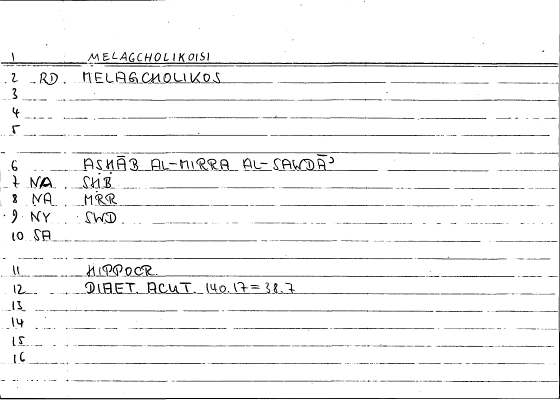 1 MELAGCHOLIKOISI
2 RD. MELAGCHOLIKOS
3
4
5
6 AṢḤĀB AL-MIRRA AL-SAWDĀʾ
7 NA SḤB
8 NA MRR
9 NY SWD
10 SA
11 HIPPOCR.
12 DIAET. ACUT. 140.17=38.7
13
14
15
16